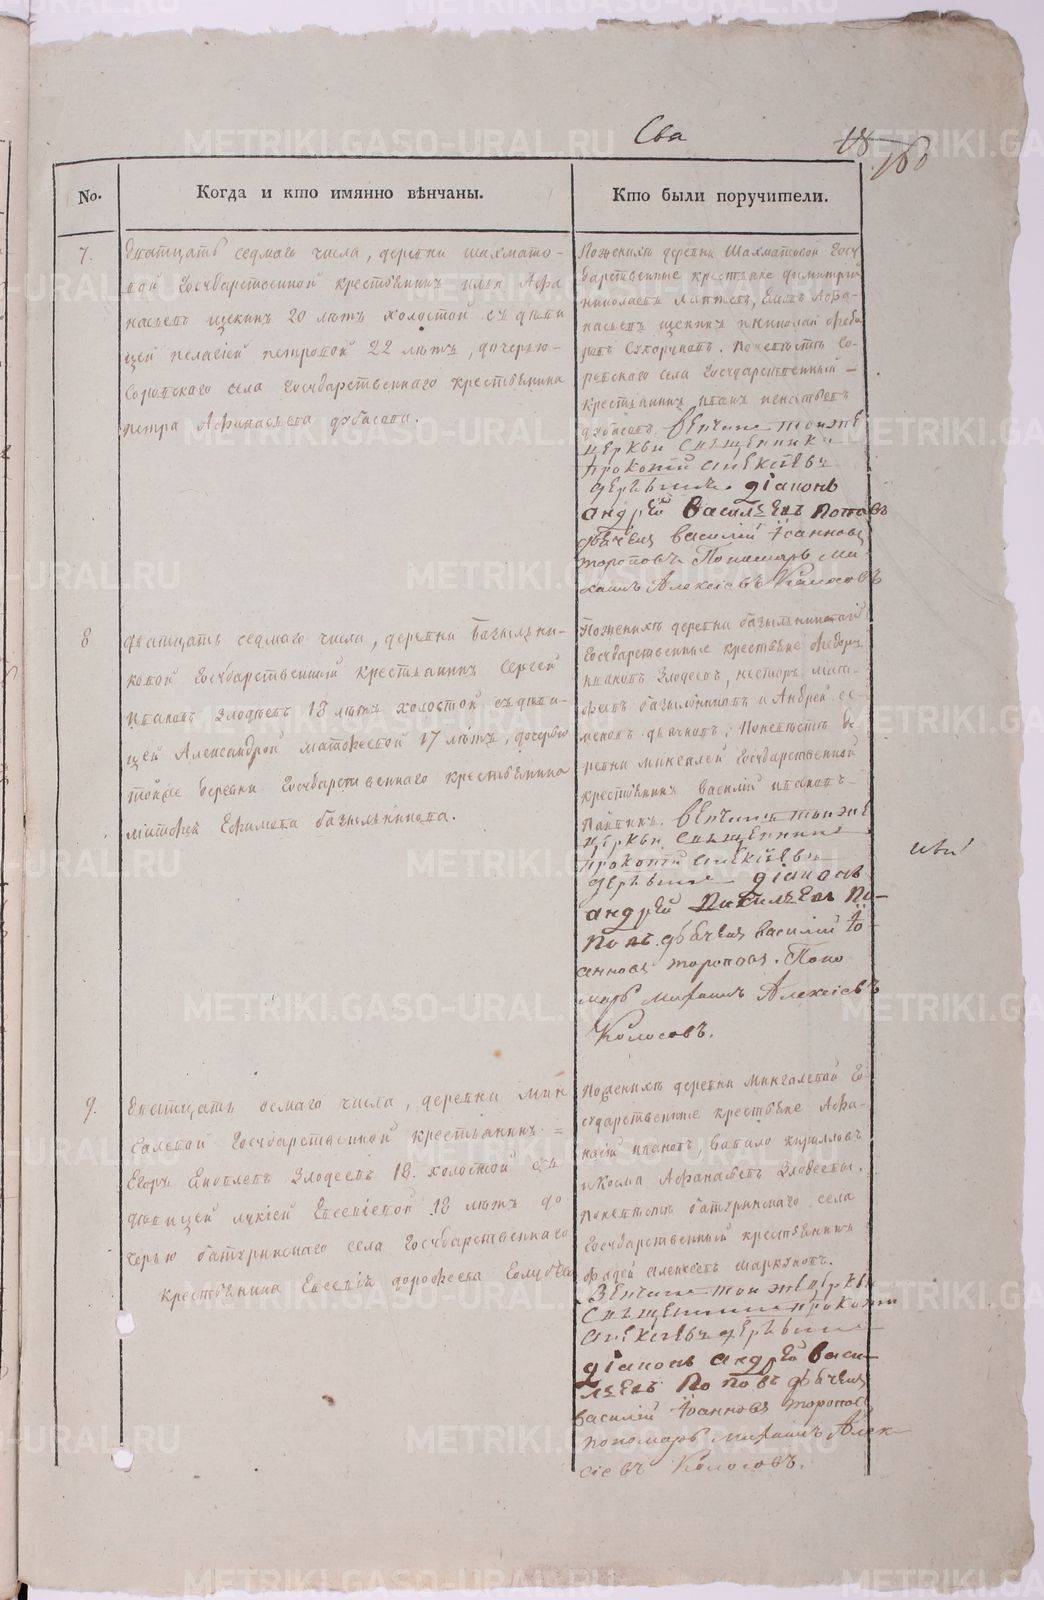 Сва
180
No.
Когда и кто имянно вѣнчаны.
Кто были поручители.
7.
Дватцать седмаго числа, деревни шахмато-
вой Государственной крестьянинъ илья Афа
насьевъ щекинъ 20 лѣтъ холостой съ дѣви
цей пелагіей петровой 22 лѣтъ, дочерью
села Государственнаго крестьянина
петра Афанасьева дубасова.
Поженихѣ деревни Шахматовой Госу
дарственные крестьяне димитри
николаевъ лаптевъ, Афа-
насьевъ щекинъ иниколай
Сухоруковъ. Поневѣстѣ
села Государственный
крестьянинъ иванъ
дубасовъ. Венчали тоиже
церкви священникъ
прокопій алексіевъ
діаконъ
андрей Василевъ Поповъ
дьячекъ василій Іоанновъ
тороповъ Пономарь ми-
хаилъ Алексіевъ Колосовъ
8
дватцать седмаго числа, деревни базыльни-
ковой Государственный крестьянинъ Сергей
ивановъ Злодеевъ 18 лѣтъ холостой съ дѣви-
цей Александрой матфеевой 17 лѣтъ, дочерью
тойже деревни Государственнаго крестьянина
матфея Ефимова базыльникова.
Поженихѣ деревни базыльниковой
Государственные крестьяне Федоръ
ивановъ Злодеевъ, несторъ мат-
феевъ базыльниковъ и Андрей се-
меновъ дьячковъ; Поневѣстѣ де-
ревни мингалей Государственной
крестьянинъ василій ивановъ
Венчали тоиже
церкви священникъ
прокопій алексіевъ
діаконъ
андрей Василевъ По-
повъ дьячекъ василій Іо-
анновъ тороповъ. Поно
марь михаилъ Алексіевъ
Колосовъ.
9.
Дватцать осмаго числа, деревни мин
галевой Государственной крестьянинъ =
Егоръ Злодеевъ 18. холостой съ
дѣвицей лукіей Евсевіевой 18 лѣтъ до
черью батуринскаго села Государственнаго
крестьянина Евсевія дорофеева
Поженихѣ деревни мингалевой Го-
сударственные крестьяне Афа-
насій ивановъ, вавило кириловъ
икосма Афанасьевъ Злодеевы.
Поневѣстѣ батуринскаго села
Государственный крестьянинъ
фадей алексеевъ маркуновъ.
Венчали тоиже церкви
священникъ прокопій
алексіевъ
діаконъ андрей Васи-
левъ Поповъ дьячекъ
василій Іоанновъ тороповъ
пономарь михаилъ Алек
сіевъ Колосовъ.